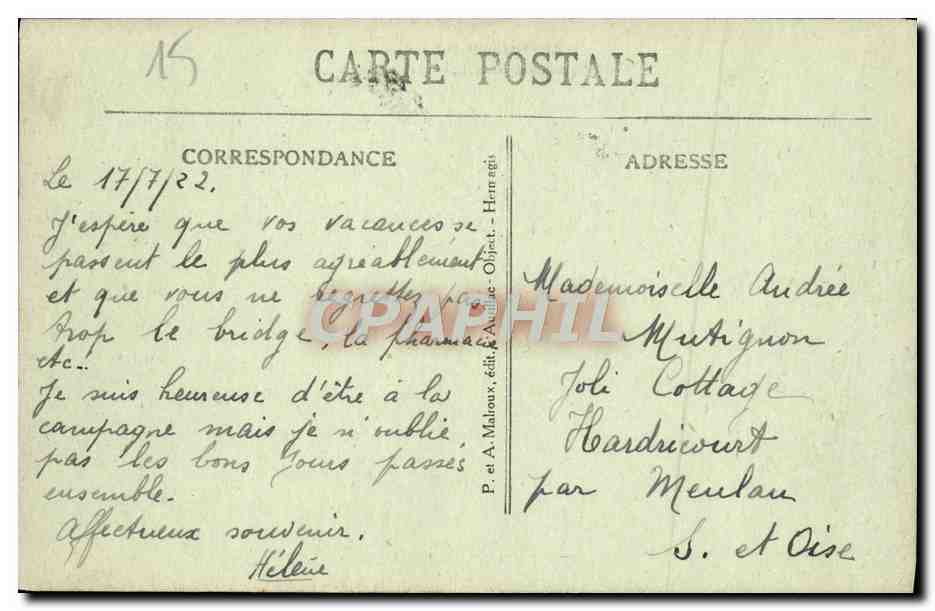 15
CARTE POSTALE
CORRESPONDANCE
Le 17/7/22.
J'espère que vos vacances se
passent le plus agréablement
et que vous ne regrettez pas
trop le bridge, la pharmacie
etc..
Je suis heureuse d'être à la
campagne mais je n'oublie
pas les bons jours passés
ensemble.
Affectueux souvenir.
Hélène
P. et A. Malroux, édit. Aurillac - Object. - Hermagis
ADRESSE
Mademoiselle Andrée
Mutignon
Joli Cottage
Hardricourt
par Meulan
S. et Oise
CPAPHIL